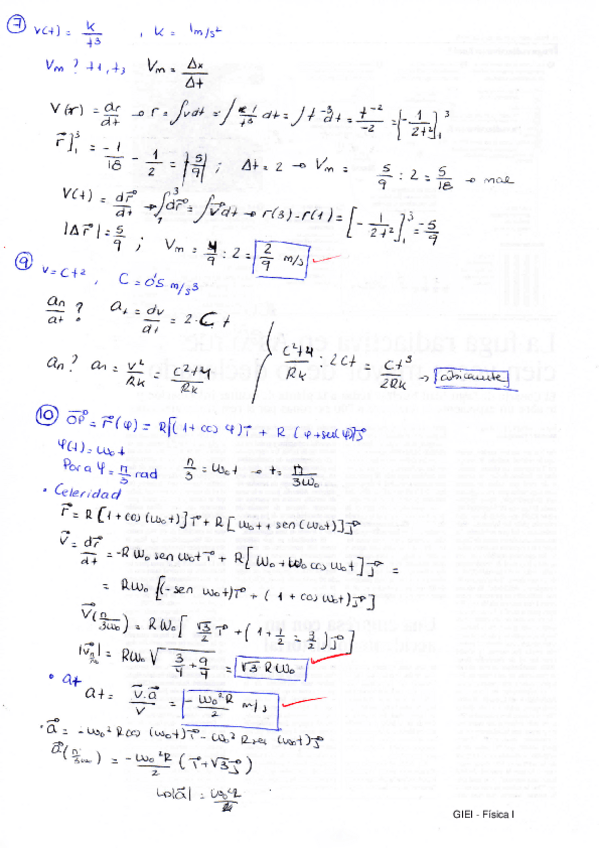 7 v(t) = k/t³ , k = 1m/s²
Vm? t1, t3 Vm = Δx/Δt
V(r) = dr/dt → r = ∫vdt = ∫1/t³ dt = ∫t⁻³dt = t⁻²/-2 = [-1/2t²]₁³
r⃗]₁³ = -1/18 - 1/2 = |5/9| ; Δt = 2 → Vm = 5/9 : 2 = 5/18 → mal
V(t) = dr⃗/dt → ∫₁³dr⃗ = ∫v⃗dt → r(3) - r(1) = [-1/2t²]₁³ = -5/9
|Δr⃗| = 5/9 ; Vm = 4/9 : 2 = 2/9 m/s
9 v = Ct² , C = 0'5 m/s³
an/at ? at = dv/dt = 2·C t
an? an = v²/Rk = C²t⁴/Rk
C²t⁴/Rk · 2Ct = Ct³/2Rk →
10 OP⃗ = r⃗(φ) = R[(1 + cos φ)i⃗ + R(φ + sen φ)j⃗
φ(t) = ω₀t
Para φ = π/3 rad π/3 = ω₀t → t = π/3ω₀
· Celeridad
r⃗ = R[1 + cos(ω₀t)]i⃗ + R[ω₀t + sen(ω₀t)]j⃗
v⃗ = dr⃗/dt = -Rω₀ sen ω₀t i⃗ + R[ω₀ + ω₀ cos ω₀t]j⃗ =
= Rω₀[(-sen ω₀t)i⃗ + (1 + cos ω₀t)j⃗]
v⃗(π/3ω₀) = Rω₀[√3/2 i⃗ + (1 + 1/2 = 3/2)j⃗]
= Rω₀ √(3/4 + 9/4) = √3 Rω₀
· at
at = v⃗·a⃗/v = -ω₀²R/2 m/s
· a⃗ = -ω₀²R cos(ω₀t)i⃗ - ω₀²R sen(ω₀t)j⃗
a⃗(π/3ω₀) = -ω₀²R/2 (i⃗ + √3j⃗)
GIEI - Física I